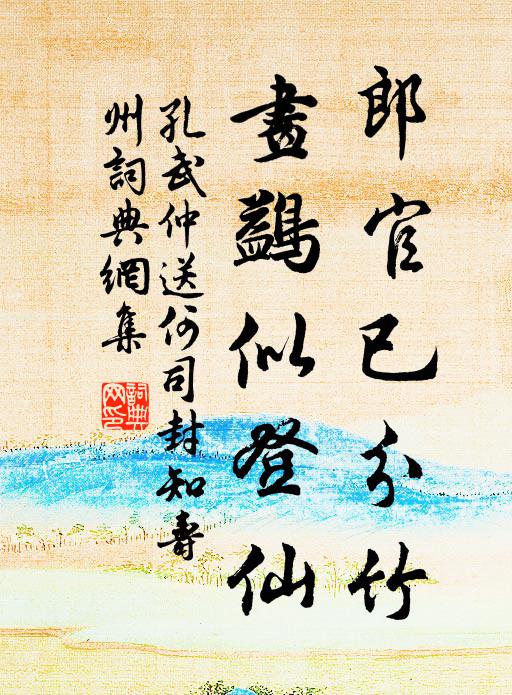 郎官已分竹
畫鷁似登仙
孔武仲送何司封知壽
州詞典網集
詞典
網印